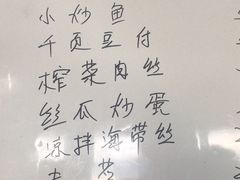 小炒鱼
千页豆付
榨菜肉丝
丝瓜炒蛋
凉拌海带丝